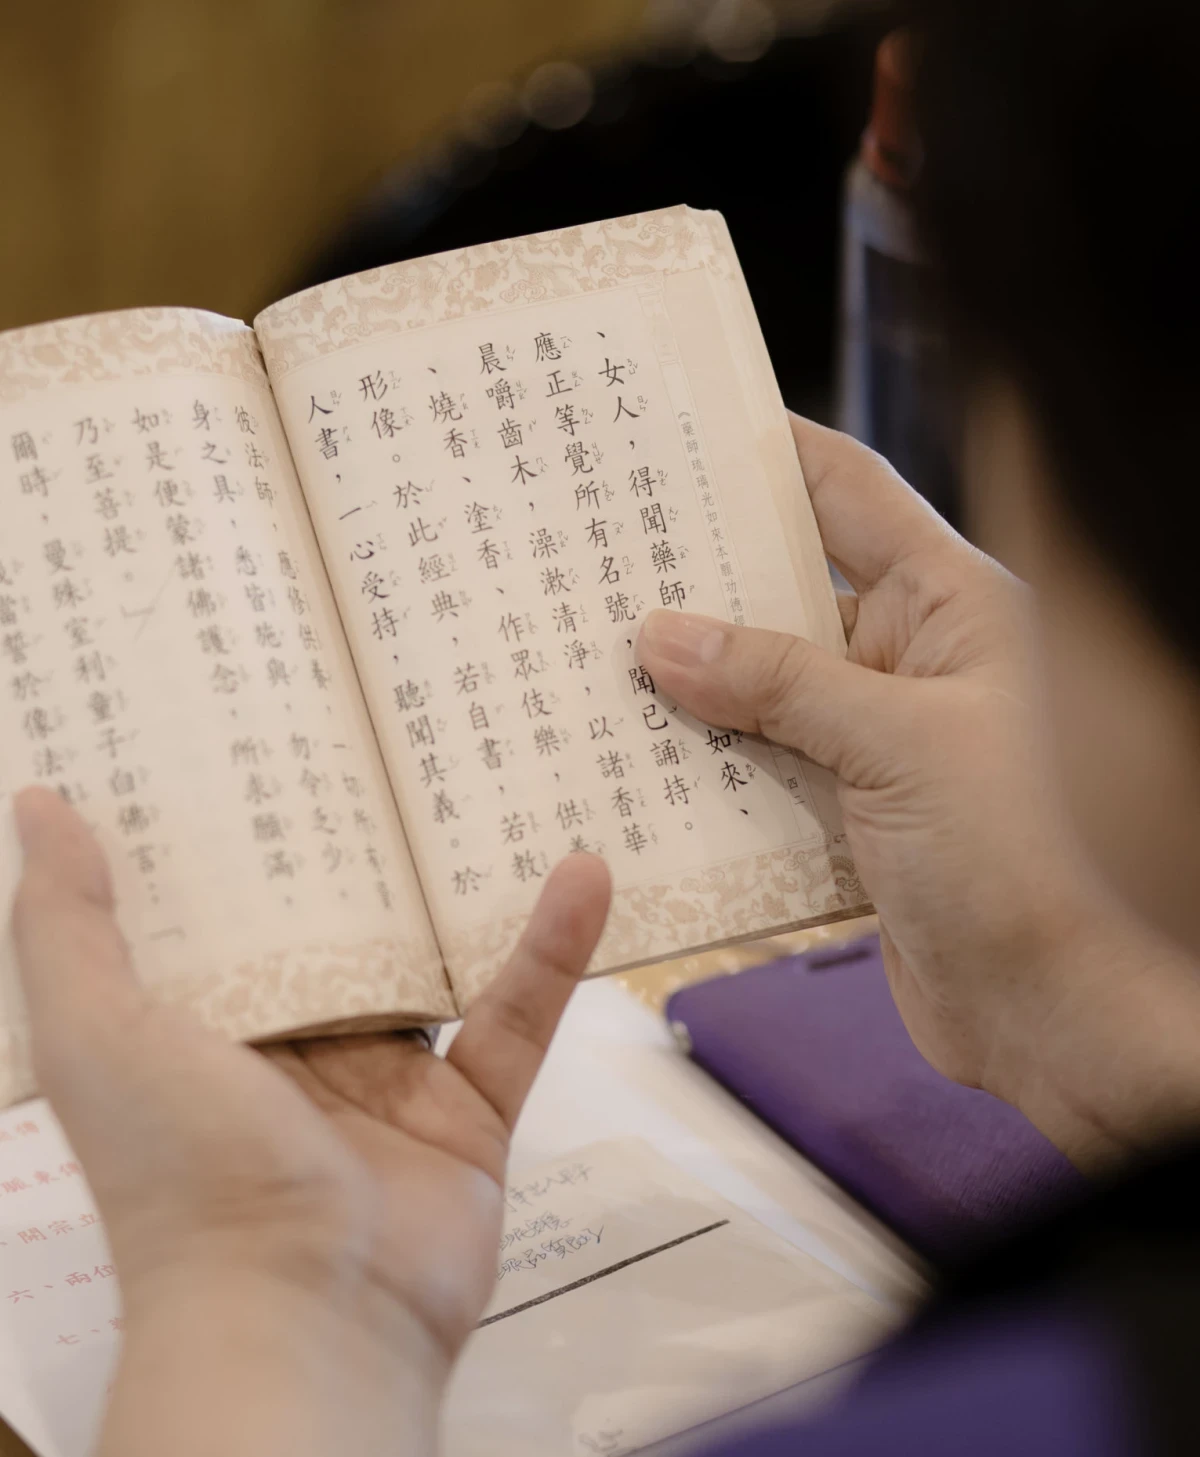 《藥師琉璃光如來本願功德經
四二
、女人,得聞藥師如來、
應正等覺所有名號,聞已誦持。
晨嚼齒木,澡漱清淨,以諸香華
、燒香、塗香、作眾伎樂,供養
形像。於此經典,若自書,若教
人書,一心受持,聽聞其義。於
彼法師,應修供養,一切所有資
身之具,悉皆施與,勿令乏少。
如是便蒙諸佛護念,所求願滿,
乃至菩提。」
爾時,曼殊室利童子白佛言:「
我當誓於像法
東傳
、開宗立
六、兩位
七、